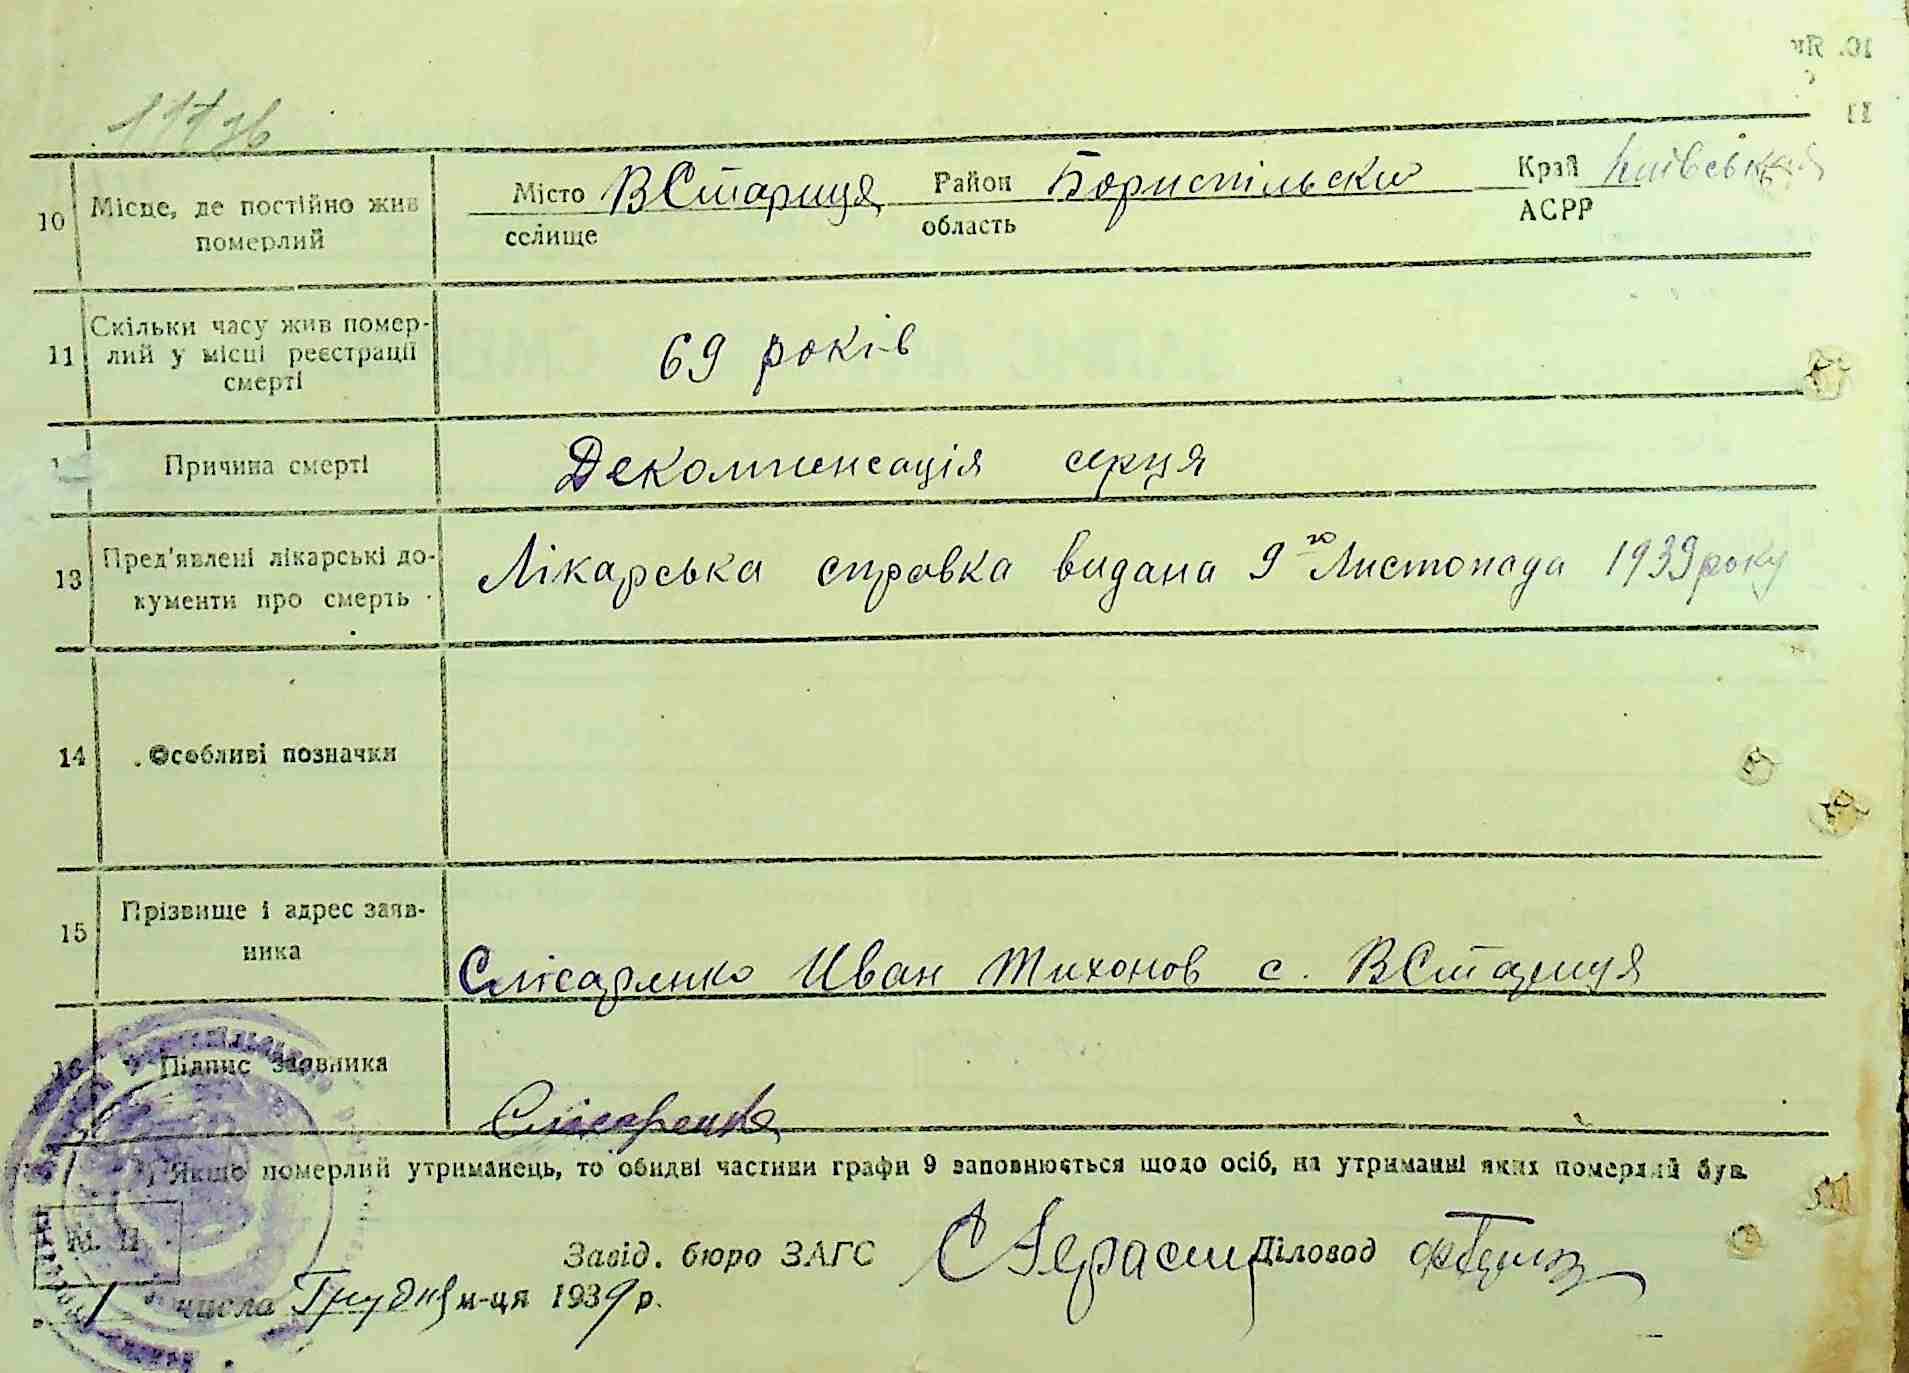 10 Місце, де постійно жив померлий Місто селище ВСтариця Район область Бориспільски Край АСРР Київська
11 Скільки часу жив померлий у місці реєстрації смерті 69 років
Причина смерті Декомпенсація серця
13 Пред'явлені лікарські документи про смерть Лікарська справка видана 9го Листопада 1939 року
14 Особливі позначки
15 Прізвище і адрес заявника Слісаренко Иван Тихонов с. ВСтариця
16 Підпис заявника Слісаренко
Якщо померлий утриманець, то обидві частини графи 9 заповнюється щодо осіб, на утриманні яких померлий був.
М. П.
Завід. бюро ЗАГС Діловод
1 числа Грудня м-ця 1939 р.